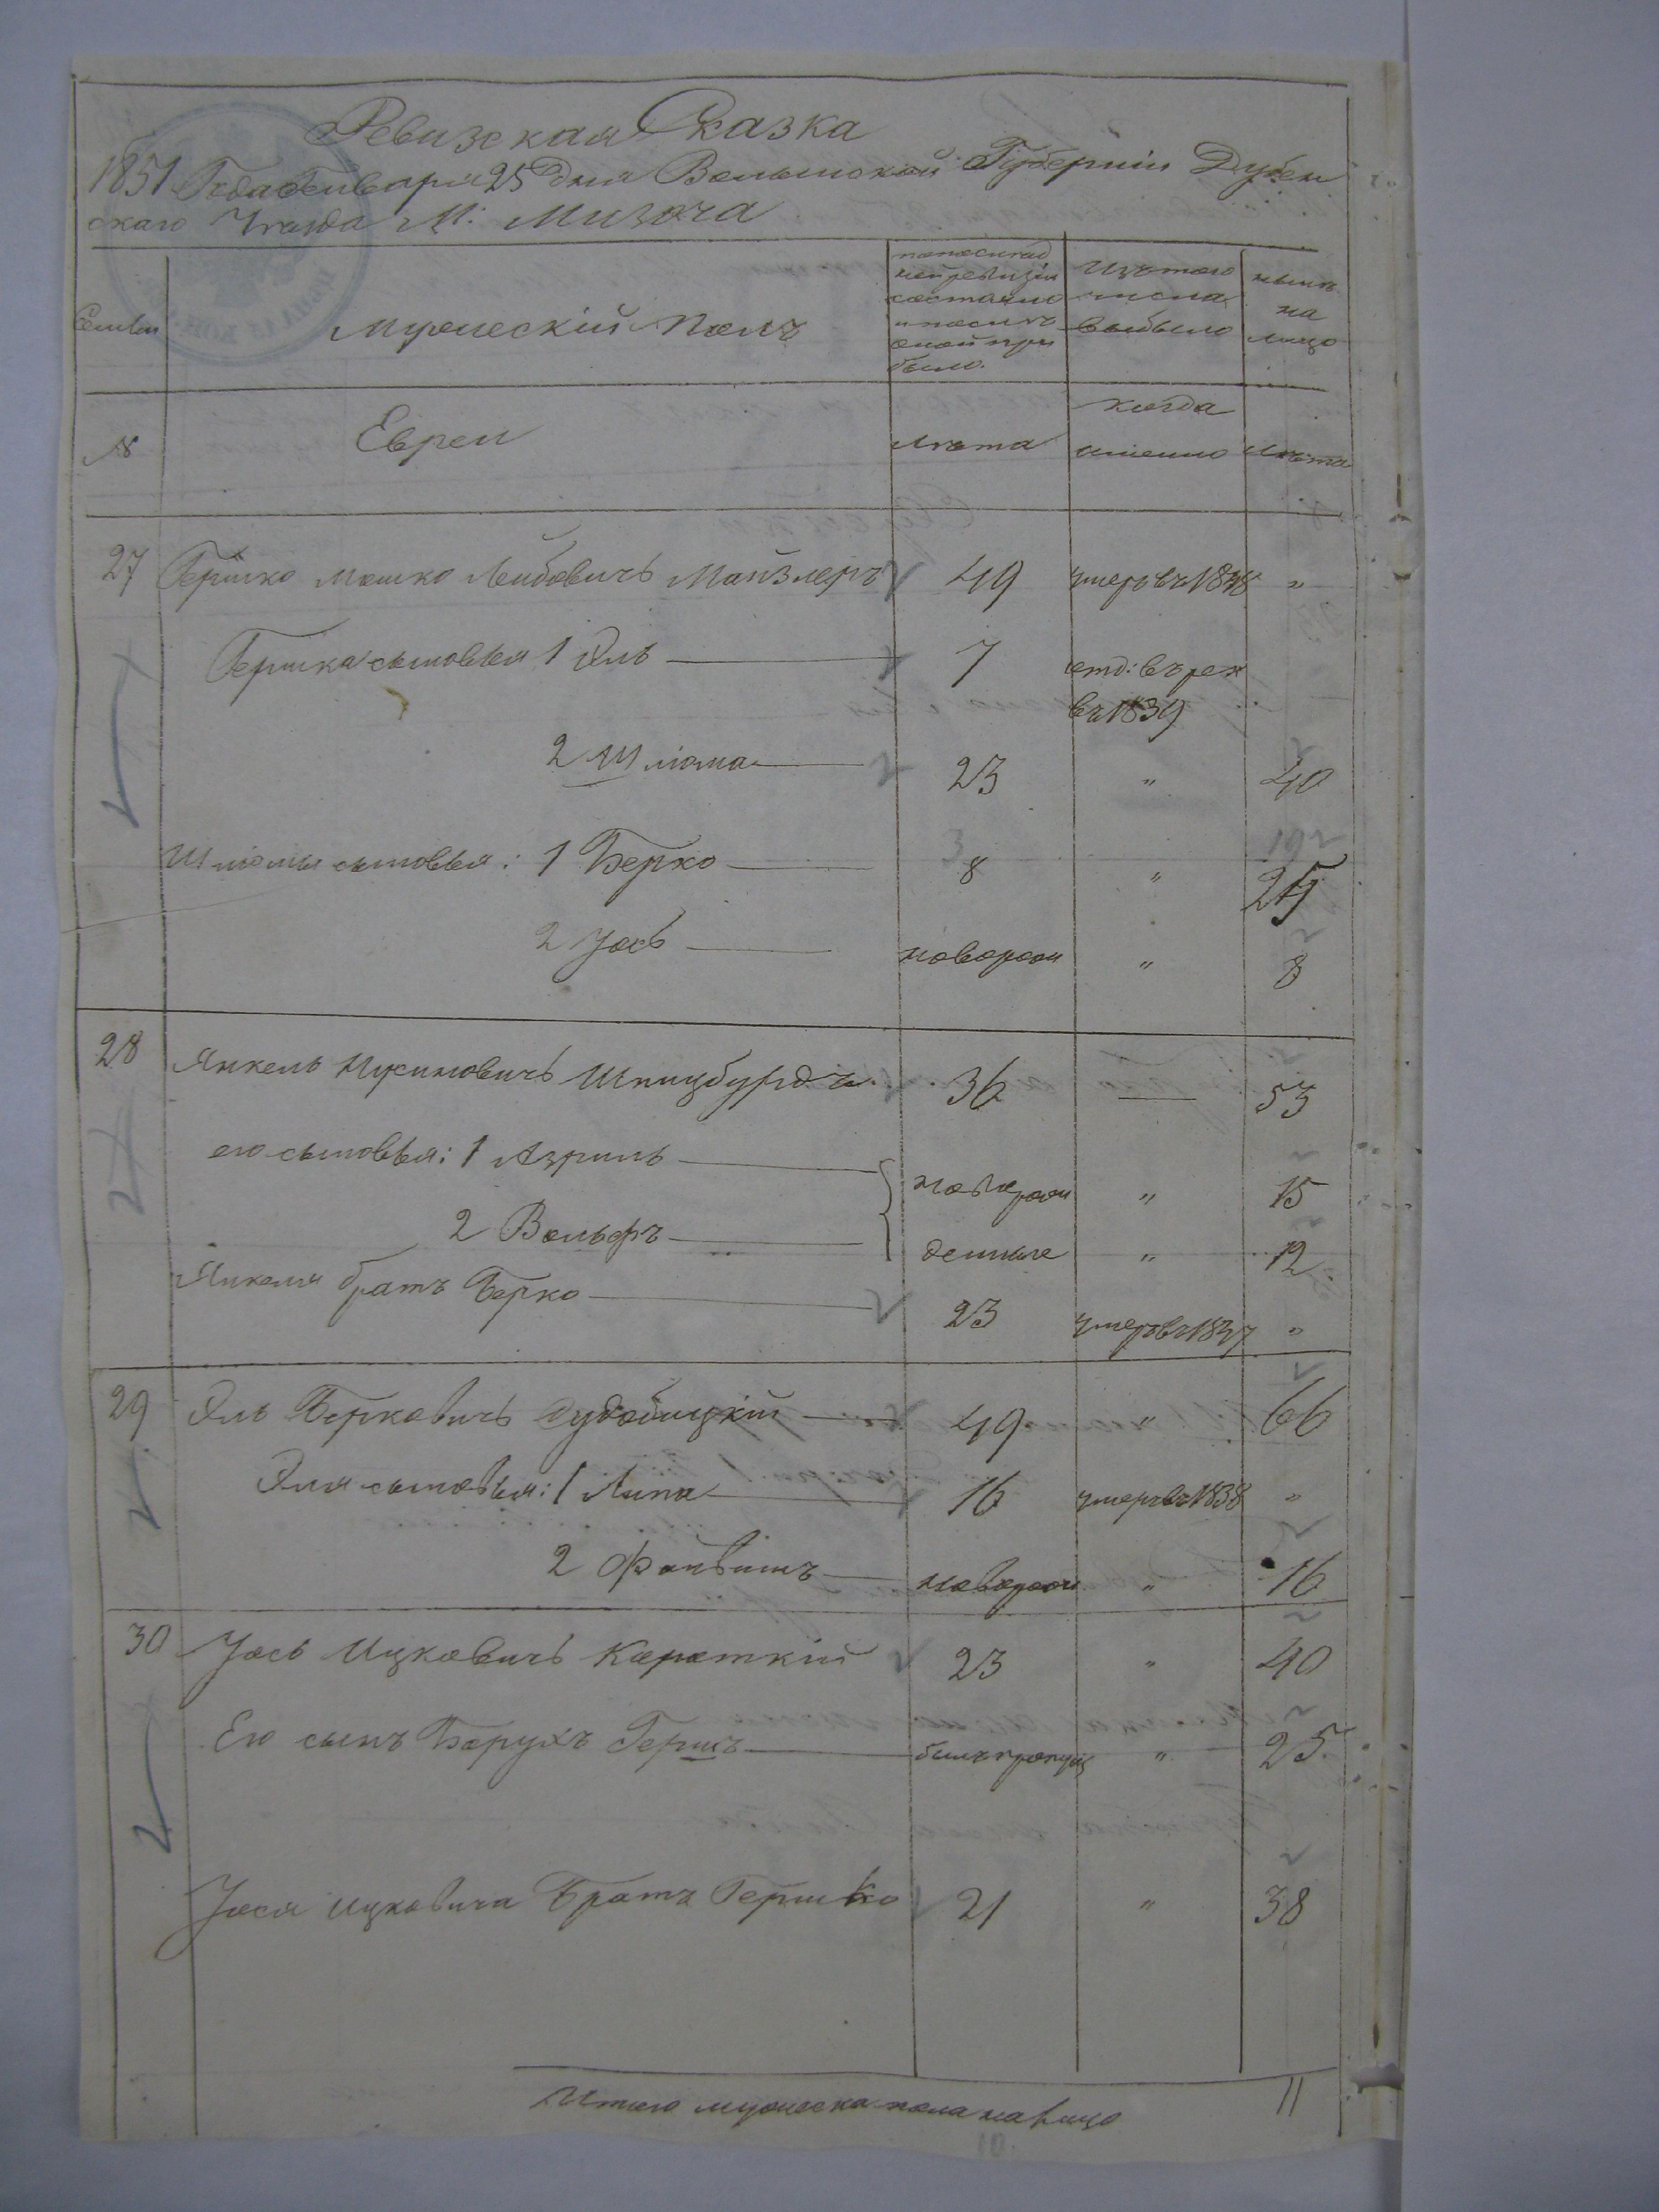 Ревизская Сказка
1851 Года Генваря 25 Дня Волынской Губернии Дубен
скаго Уезда М: Мизоча
Семьи
Мужескій Полъ
по последней ревизіи состояло и после оной прибыло.
Изъ того числа выбыло
ныне на лицо
№
Евреи
Лета
когда именно
Лета
27 Гершко Мошко Лейбовичъ Майзлеръ 49 умеръ въ 1848 "
Гершка сыновья 1 Эль 7 отд: въ рек
въ 1839
2 Шліома 23 " 40
Шліомы сыновья: 1 Берко 8 " 25
2 Іось новорож " 8
28 Янкель Нусимовичъ Шпицбурдъ 36 — 53
его сыновья: 1 Азриль новорож " 15
2 Вольфъ денные " 12
Янкеля братъ Берко 23 умеръ въ 1847 "
29 Эль Берковичъ 49 " 66
Эля сыновья: 1 Липа 16 умеръ въ 1838 "
2 Файвишъ новорож " 16
30 Іось Ицковичъ Кароткій 23 " 40
Его сынъ Борухъ Гершъ былъ пропущ " 25
Іося Ицковича Братъ Гершко 21 " 38
Итого мужеска пола на лицо 11
10.